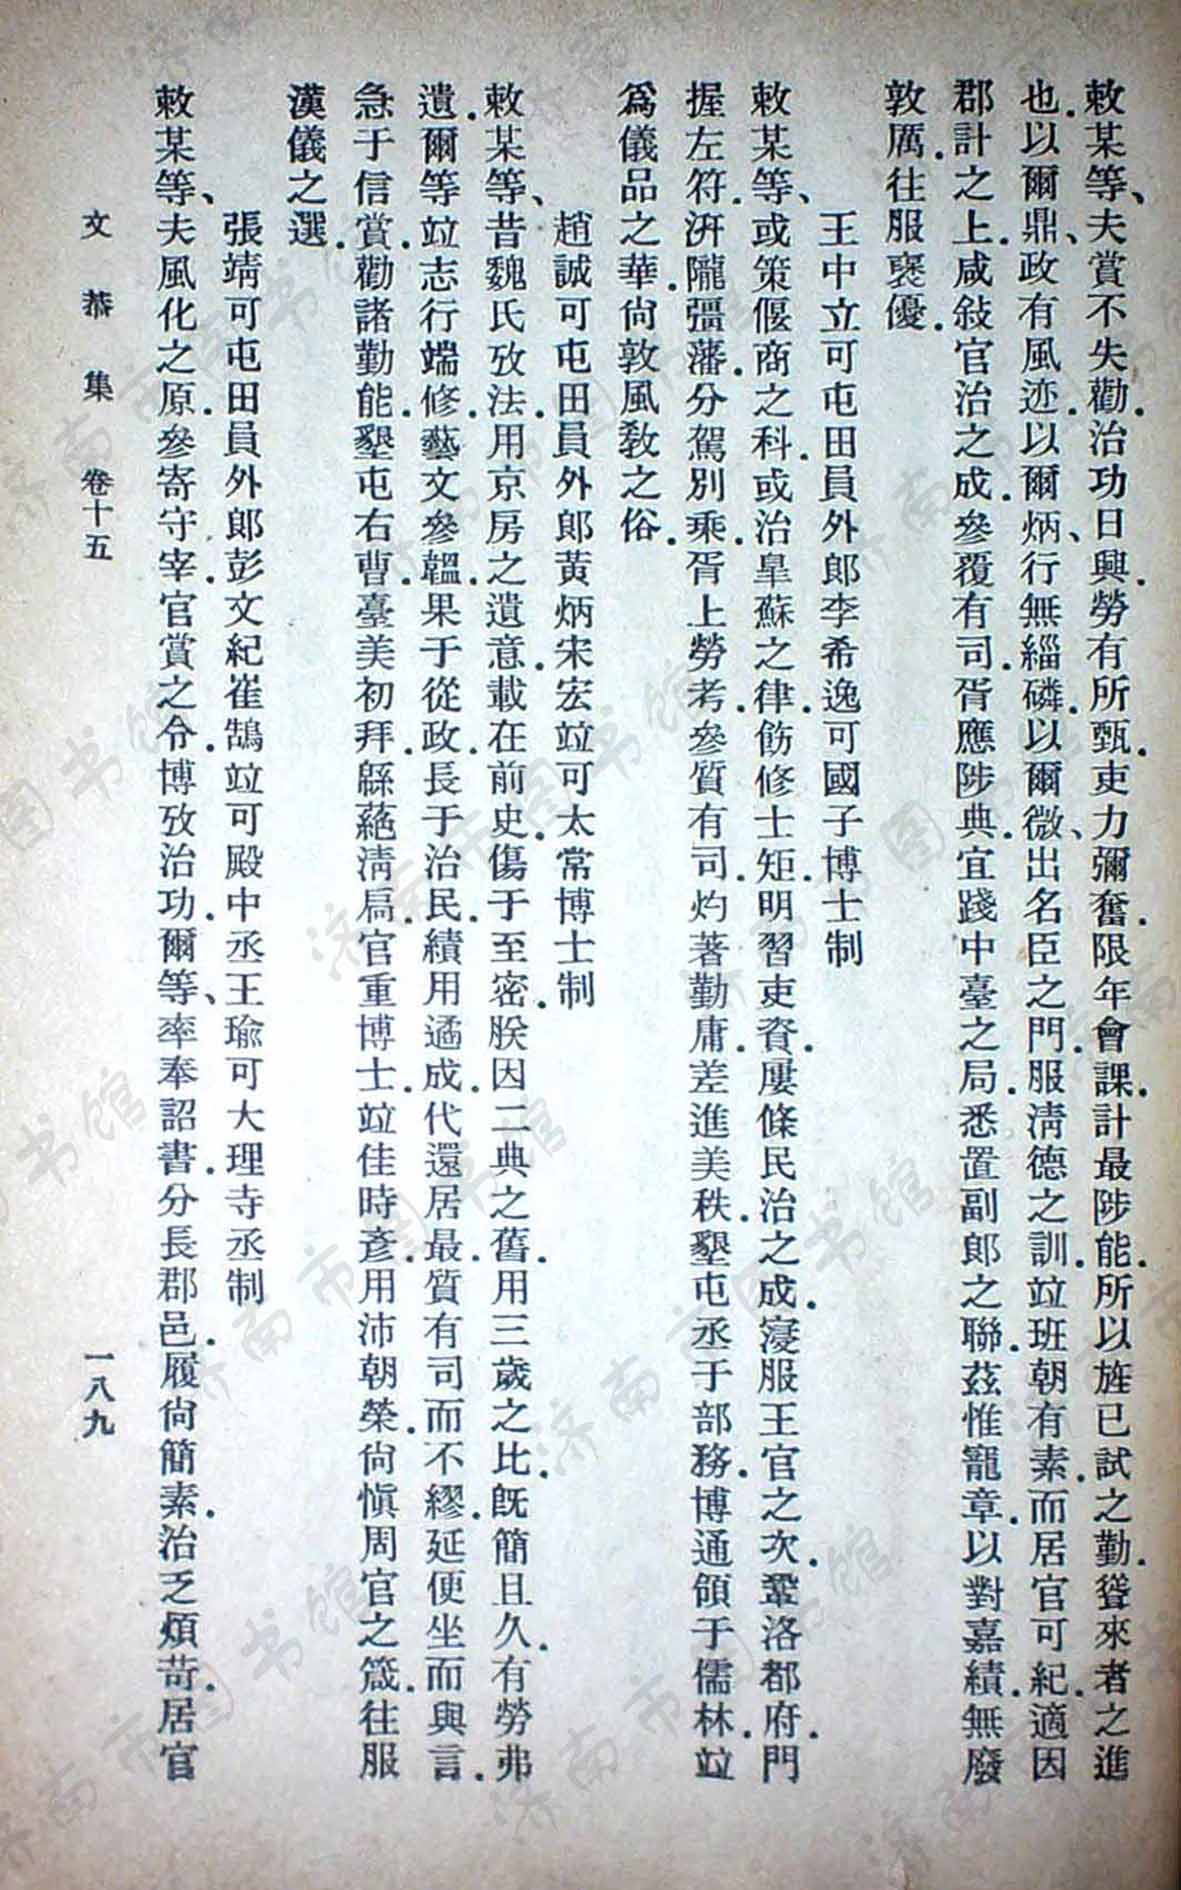 敕某等、夫賞不失勸．治功日興．勞有所甄．吏力彌奮．限年會課．計最陟能．所以旌已試之勤．聳來者之進
也．以爾鼎、政有風迹．以爾炳、行無緇磷．以爾微、出名臣之門．服淸德之訓．竝班朝有素．而居官可紀．適因
郡計之上．咸敍官治之成．參覆有司．胥應陟典．宜踐中臺之局．悉置副郎之聯．茲惟寵章．以對嘉績．無廢
敦厲．往服褒優．
王中立可屯田員外郎李希逸可國子博士制
敕某等、或策偃商之科．或治臯蘇之律．飭修士矩．明習吏資．屢條民治之成．寖服王官之次．鞏洛都府．門
握左符．汧隴彊藩．分駕別乘．胥上勞考．參質有司．灼著勤庸．差進美秩．墾屯丞于部務．博通領于儒林．竝
爲儀品之華．尙敦風敎之俗．
趙誠可屯田員外郎黃炳宋宏竝可太常博士制
敕某等、昔魏氏攷法．用京房之遺意．載在前史．傷于至密．朕因二典之舊．用三歲之比．旣簡且久．有勞弗
遺．爾等竝志行端修．藝文參韞．果于從政．長于治民．績用遹成．代還居最．質有司而不繆．延便坐而與言．
急于信賞．勸諸勤能．墾屯右曹．臺美初拜．緜蕝淸扃．官重博士．竝佳時彥．用沛朝榮．尙愼周官之箴．往服
漢儀之選．
張靖可屯田員外郎彭文紀崔鵠竝可殿中丞王瑜可大理寺丞制
敕某等、夫風化之原．參寄守宰．官賞之令．博攷治功．爾等、率奉詔書．分長郡邑．履尙簡素．治乏煩苛．居官
文恭集 卷十五 一八九
济南市图书馆